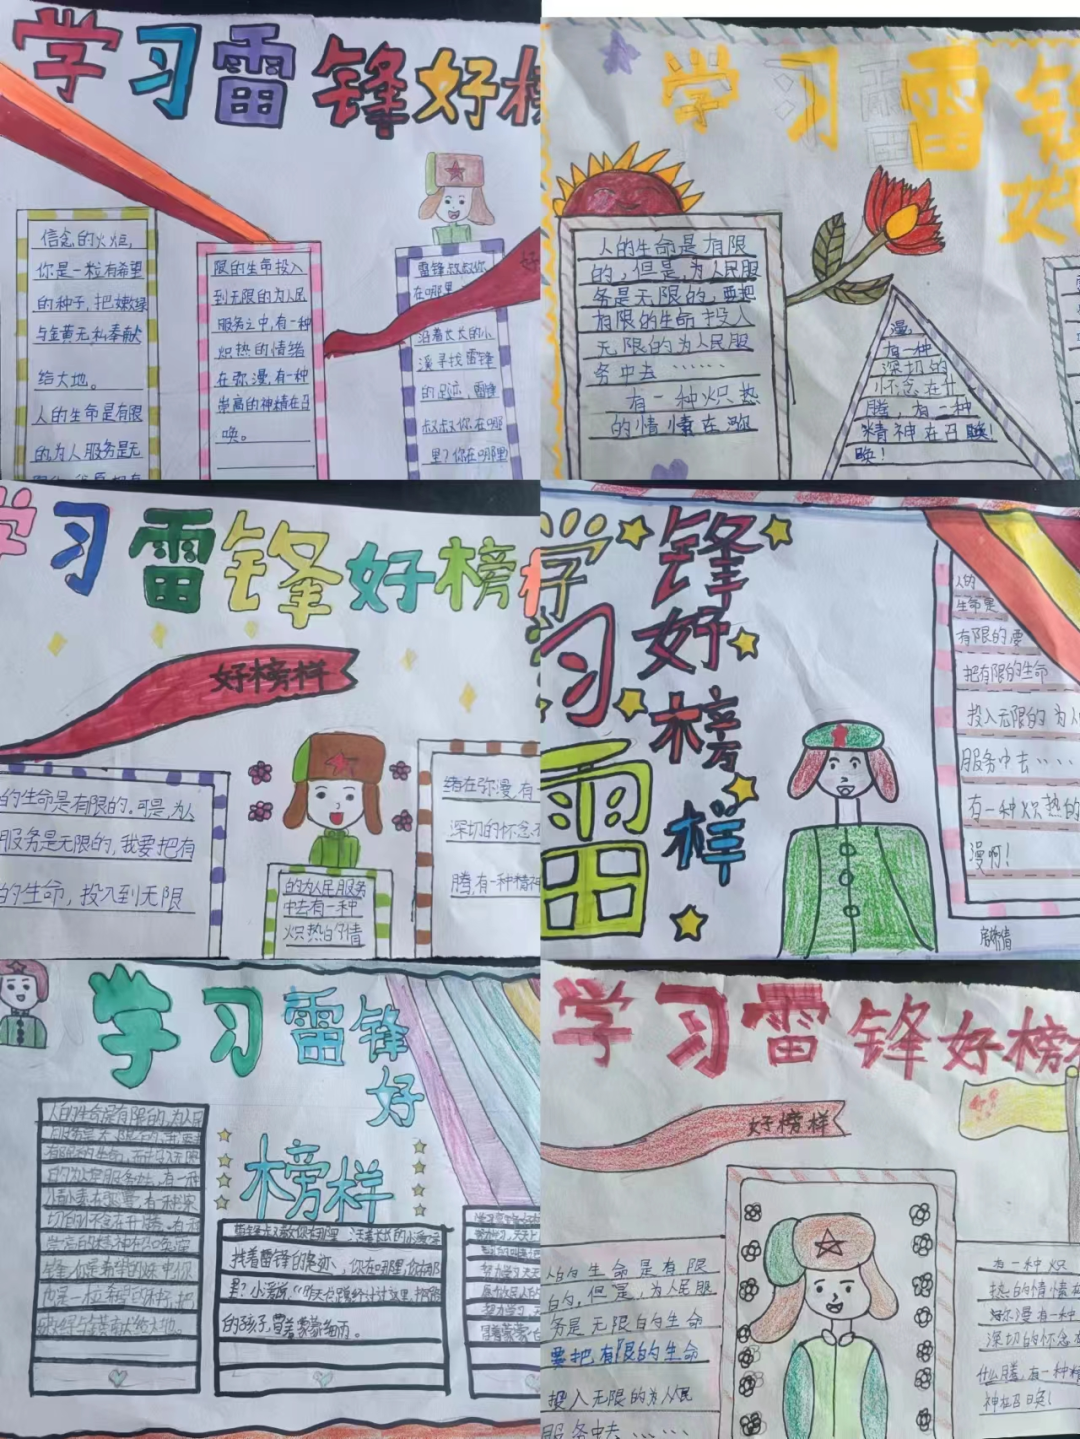 学习雷锋好榜
信念的火炬,
你是一粒有希望
的种子,把嫩绿
与金黄无私奉献
给大地。
人的生命是有限
的为人服务是无
限的生命投入
到无限的为人民
服务之中,有一种
炽热的情绪
在弥漫,有一种
崇高的神精在召
唤。
雷锋叔叔你
在哪里
沿着长长的小
溪寻找雷锋
的足迹,雷锋
叔叔你在哪
里?你在哪里
好
学习雷锋
好
人的生命是有限
的,但是,为人民服
务是无限的,要把
有限的生命投入
无限的为人民服
务中去······
有一种炽热
的情愫在弥
漫,
有一种
深切的
怀念在什
腾,有一种
精神在召唤!
唤!
学习雷锋好榜样
好榜样
的生命是有限的.可是,为人
服务是无限的,我要把有
的生命,投入到无限
的为人民服务
中去有一种
炽热的情
绪在弥漫,有一
深切的怀念
腾,有一种精神
学习雷
锋好榜样
人的
生命是
有限的要
把有限的生命
投入无限的为人
服务中去·····
有一种炽热的
漫啊!
学习雷锋
好
榜样
人的生命是有限的,为人民
有限的生命
锋,你是
找着雷锋的足迹,你在哪里,你在那
里?小溪说:
的孩子,冒着蒙蒙细雨。
学习雷锋好榜
好榜样
人的生命是有限
的,但是,为人民服
务是无限的生命
要把有限的生命
投入无限的为人民
服务中去······
有一种炽
热的情愫在
弥漫有一种
深切的怀念在
什么腾,有一种精
神在召唤!